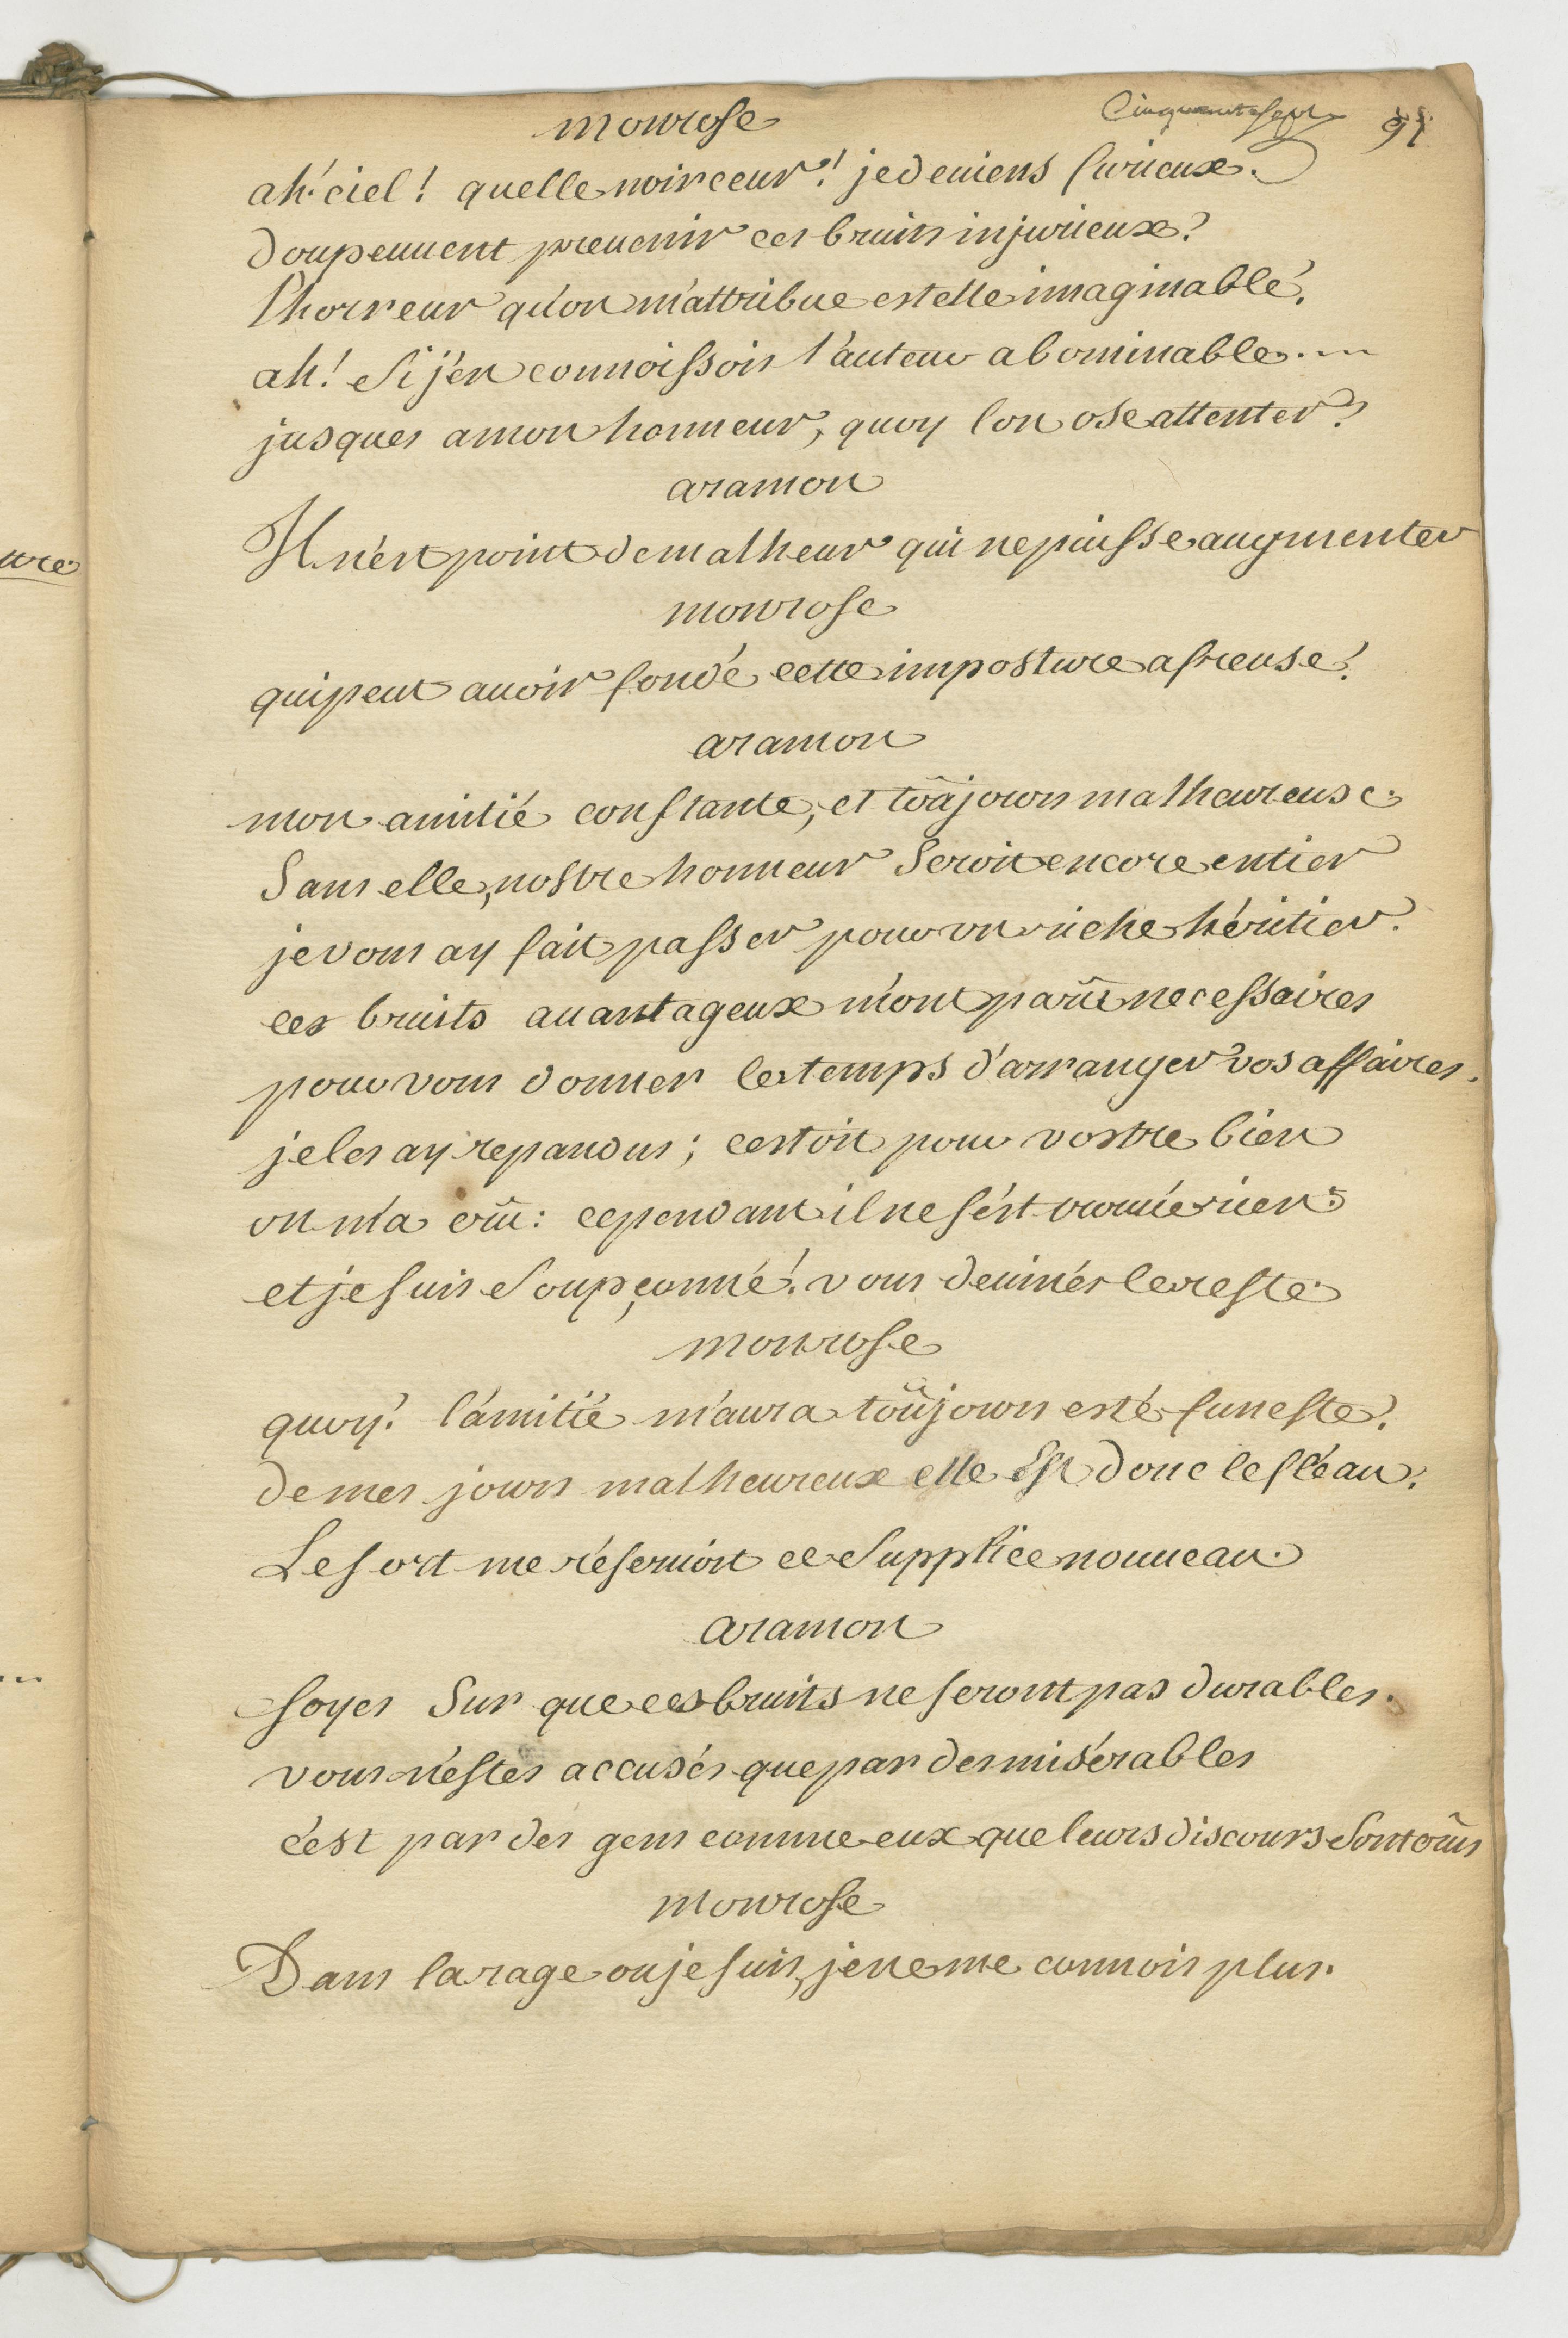 monrose
Cinquante sept
ah! ciel! quelle noirceur! je deuiens furieux.
d'ou peuuent preuenir ces bruits injurieux?
l'horreur qu'on m'attribue est elle imaginable?
ah! Si j'en connoissois l'auteur abominable....
jusques a mon honneur, quoy l'on ose attenter?
aramon
Il n'est point de malheur qui ne puisse augmenter
monrose
qui peut auoir fondé cette imposture afreuse?
aramon
mon amitié constante, et toûjours malheureuse.
Sans elle, nostre honneur Seroit encore entier
je vous ay fait passer pour un riche héritier.
ces bruits auantageux m'ont parû necessaires
pour vous donner le temps d'arranger vos affaires.
je les ay repandus; c'estoit pour vostre bien
on m'a crû: cependant il ne s'est trouué rien:
et je suis Soupçonné! vous deuinés le reste.
monrose
quoy! l'amitié m'aura toûjours esté funeste?
de mes jours malheureux elle Est donc le fléau?
Le sort me réseruoit ce Supplice nouueau.
aramon
soyes Sur que ces bruits ne seront pas durables.
vous n'estes accusés que par des misérables
c'est par des gens comme eux que leurs discours Sont crûs
monrose
Dans la rage ou je suis, je ne me connois plus.